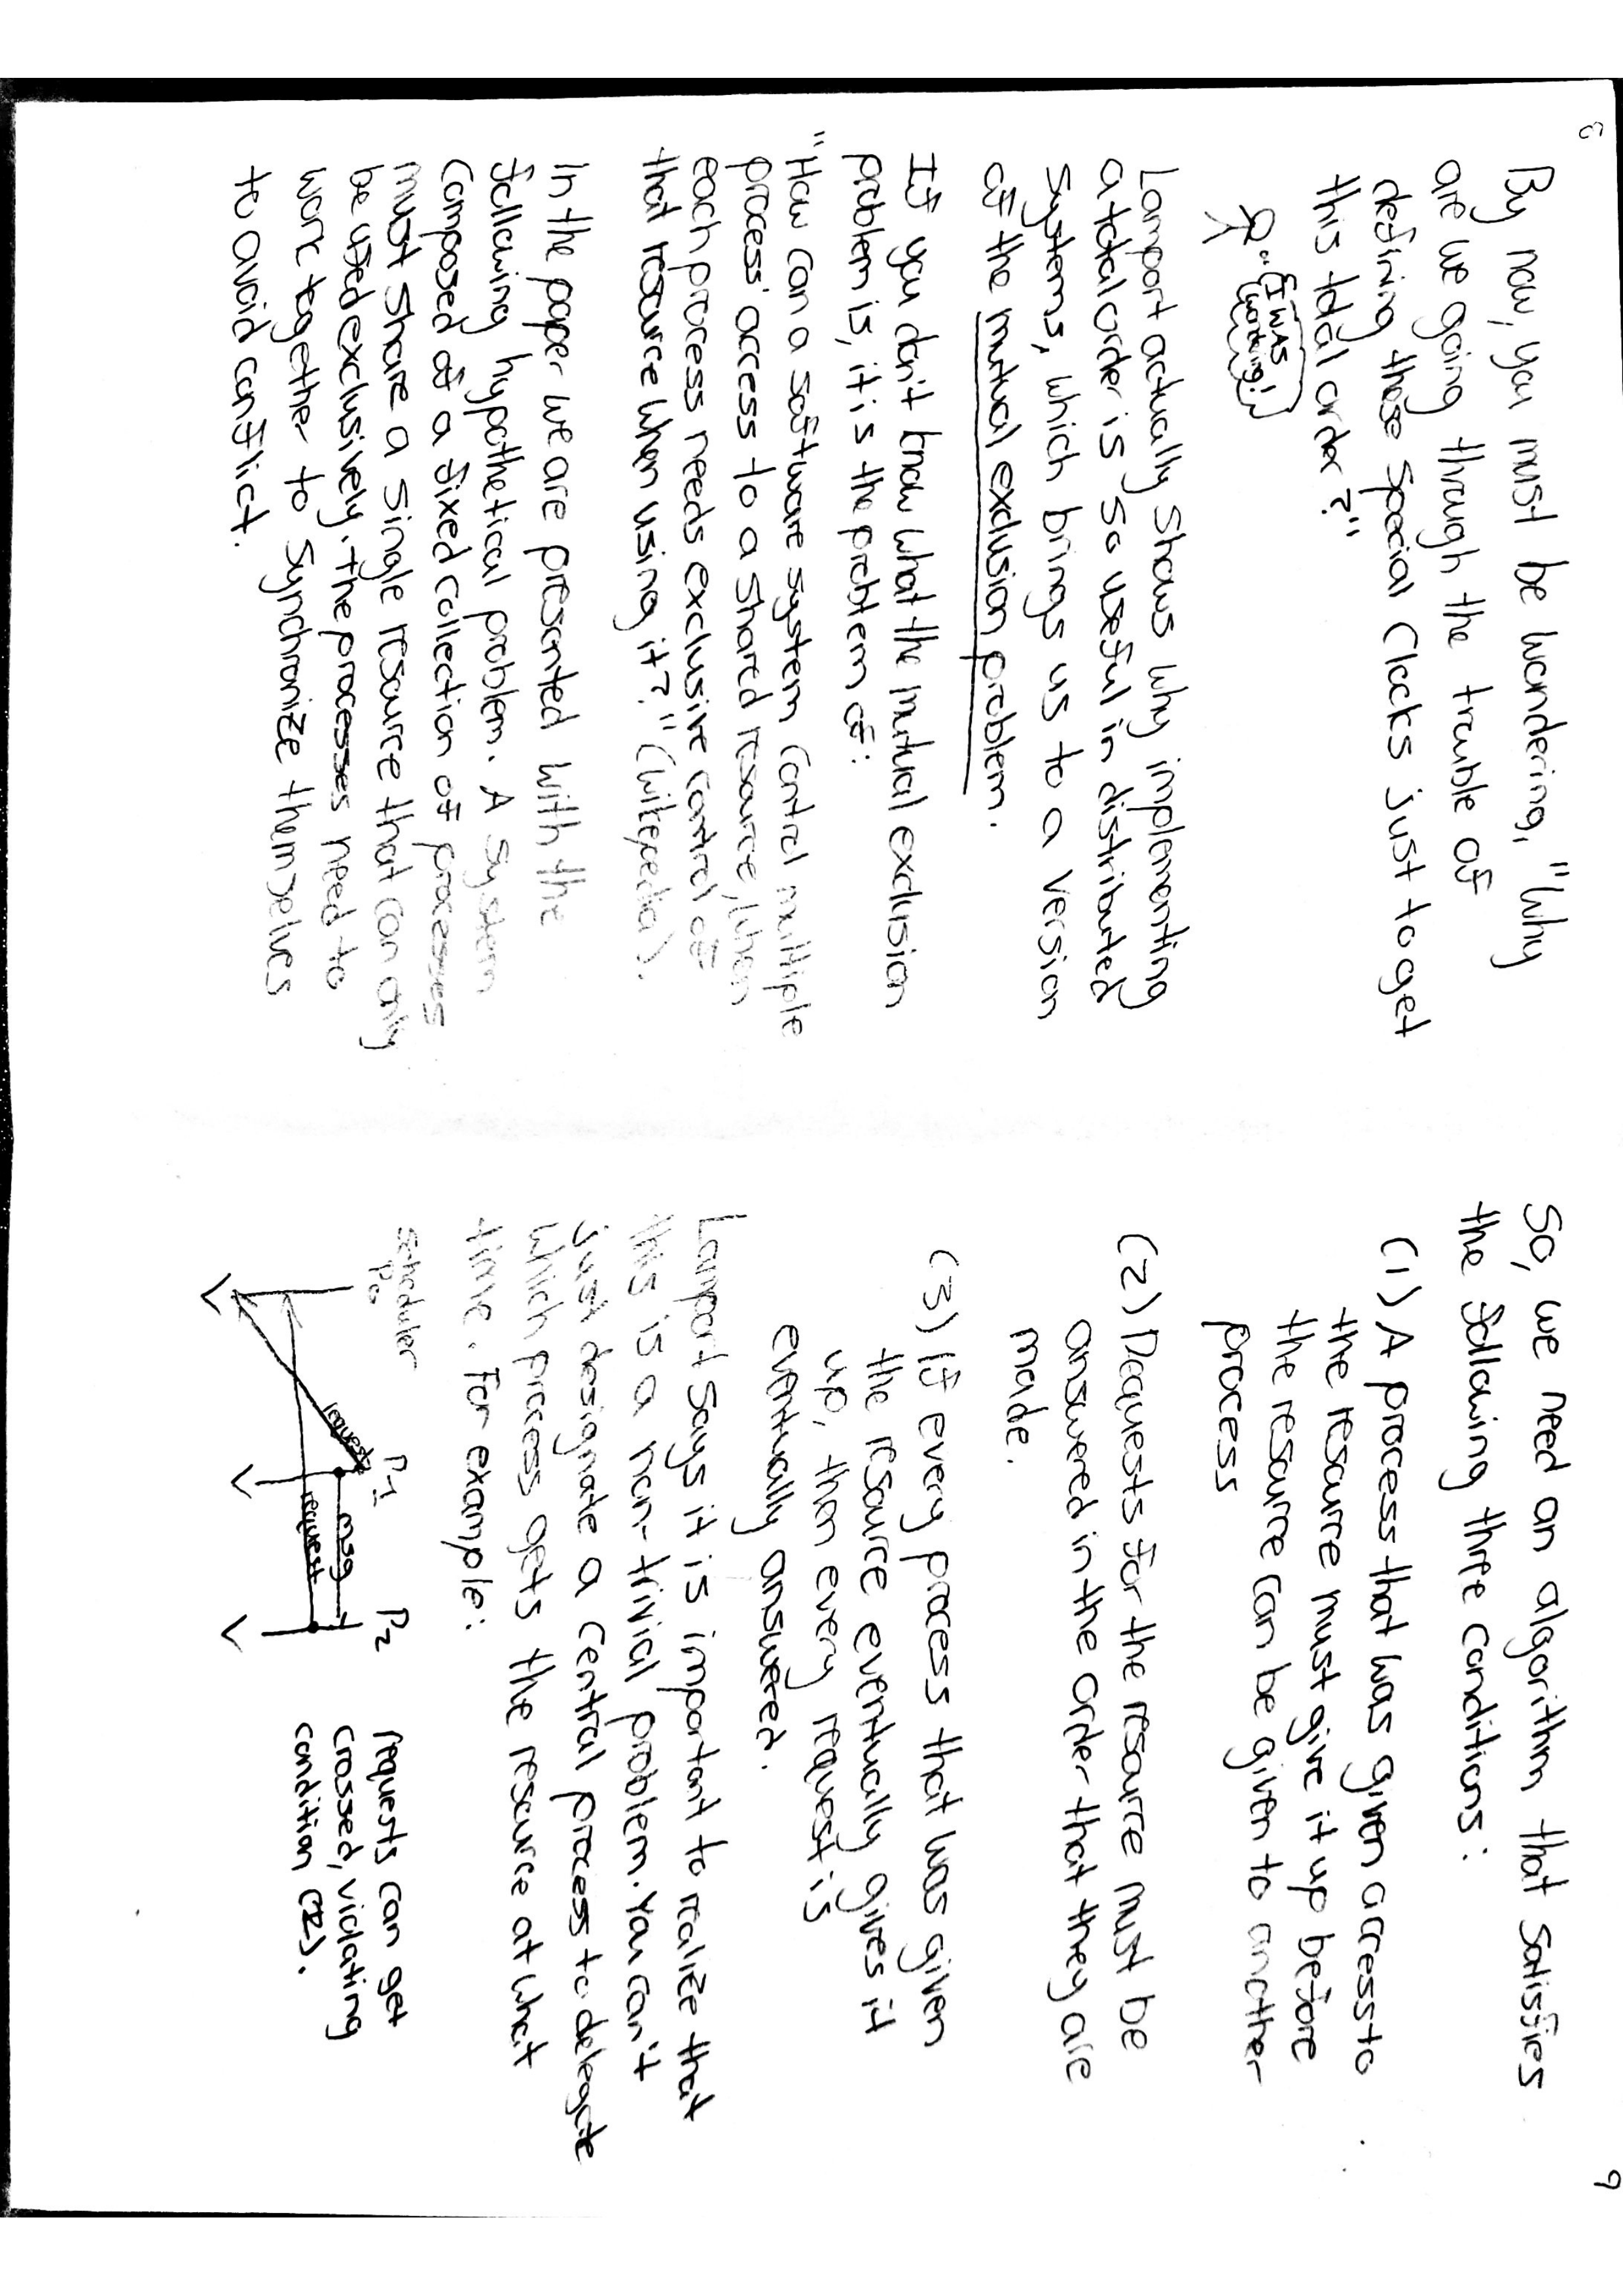 By now, you must be wondering, "Why
are we going through the trouble of
defining these special clocks just to get
this total order?"
I WAS
wondering!
Lamport actually shows why implementing
a total order is so useful in distributed
systems, which brings us to a version
of the mutual exclusion problem.
If you don't know what the mutual exclusion
problem is, it is the problem of:
"How can a software system control multiple
process' access to a shared resource, when
each process needs exclusive control of
that resource when using it?" (Wikipedia).
In the paper we are presented with the
following hypothetical problem. A system
composed of a fixed collection of processes
must share a single resource that can only
be used exclusively. The processes need to
work together to synchronize themselves
to avoid conflict.
So, we need an algorithm that satisfies
the following three conditions:
(1) A process that was given access to
the resource must give it up before
the resource can be given to another
process
(2) Requests for the resource must be
answered in the order that they are
made.
(3) If every process that was given
the resource eventually gives it
up, then every request is
eventually answered.
Lamport says it is important to realize that
this is a non-trivial problem. You can't
just designate a central process to delegate
which process gets the resource at what
time. For example:
scheduler
P0
P1
P2
request
msg
request
requests can get
crossed, violating
condition (2).
9